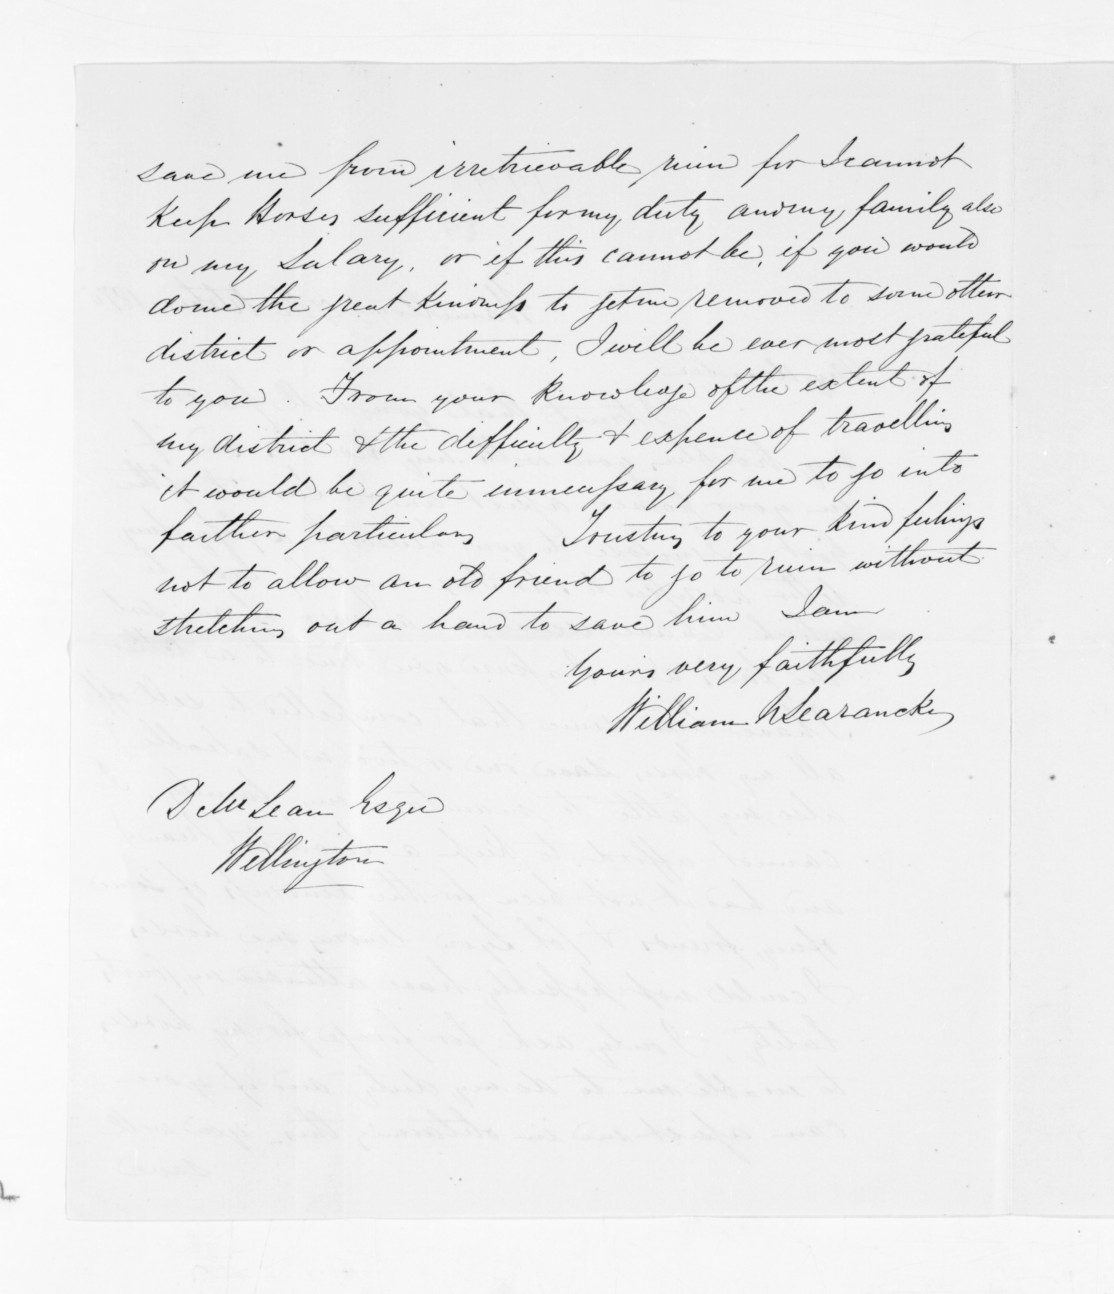 save me from irretrievable ruin for I cannot
keep Horses sufficient for my duty and my family also
on my Salary, or if this cannot be, if you would
do me the great kindness to get me removed to some other
district or appointment, I will be ever most grateful
to you. From your knowledge of the extent of
my district & the difficulty & expense of travelling
it would be quite unnecessary for me to go into
farther particulars Trusting to your kind feelings
not to allow an old friend to go to ruin without
stretching out a hand to save him I am
Yours very faithfully
William N Searancke
D McLean Esqre
Wellington